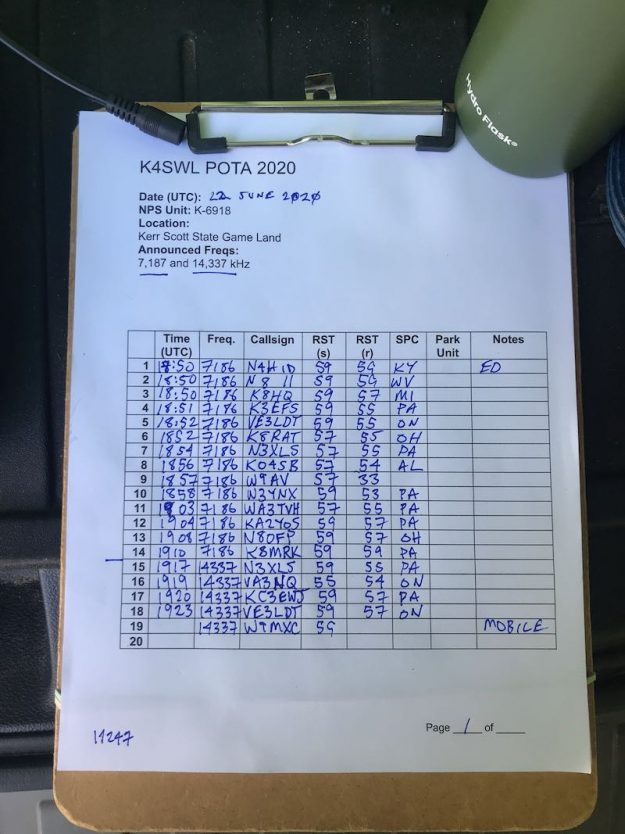 Hydro Flask®
K4SWL POTA 2020
Date (UTC): 22 JUNE 2020
NPS Unit: K-6918
Location:
Kerr Scott State Game Land
Announced Freqs:
7,187 and 14,337 kHz
Time (UTC) Freq. Callsign RST (s) RST (r) SPC Park Unit Notes
1 18:50 7186 N4HID 59 59 KY ED
2 18:50 7186 N8II 59 59 WV
3 18:50 7186 K8HQ 59 57 MI
4 18:51 7186 K3EFS 59 55 PA
5 18:52 7186 VE3LDT 59 55 ON
6 1852 7186 K8RAT 57 55 OH
7 1854 7186 N3XLS 57 55 PA
8 1856 7186 KO4SB 57 54 AL
9 1857 7186 W9AV 57 33
10 1858 7186 W3YNX 59 53 PA
11 1903 7186 WA3TVH 57 55 PA
12 1904 7186 KA2YOS 59 57 PA
13 1908 7186 N8OFP 59 57 OH
14 1910 7186 K8MRK 59 59 PA
15 1917 14337 N3XLS 59 55 PA
16 1919 14337 VA3NQ 55 54 ON
17 1920 14337 KC3EWJ 59 57 PA
18 1923 14337 VE3LDT 59 57 ON
19 14337 W9MXC 59 MOBILE
20
Page 1 of